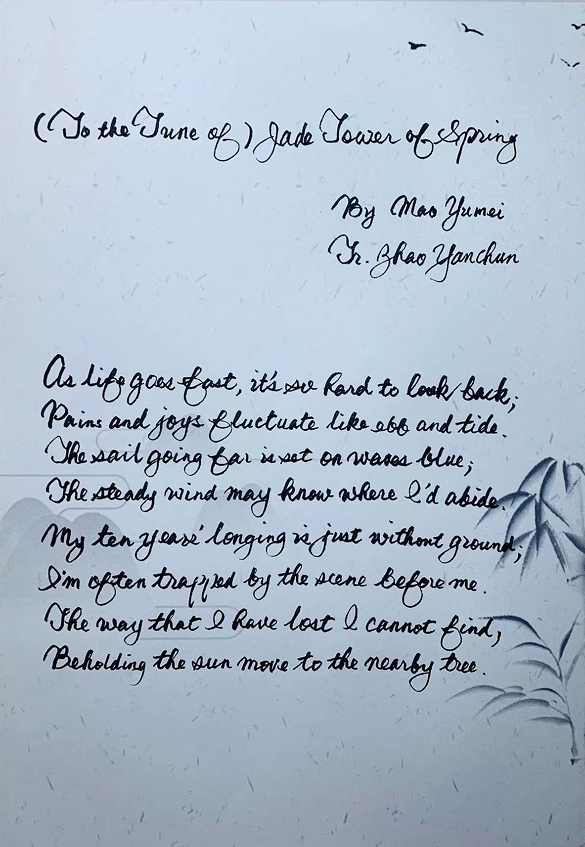 (To the Tune of) Jade Tower of Spring
By Mao Yumei
Tr. Zhao Yanchun
As life goes fast, it's so hard to look back;
Pains and joys fluctuate like ebb and tide.
The sail going far is set on waves blue;
The steady wind may know where I'd abide.
My ten years' longing is just without ground;
I'm often trapped by the scene before me.
The way that I have lost I cannot find,
Beholding the sun move to the nearby tree.